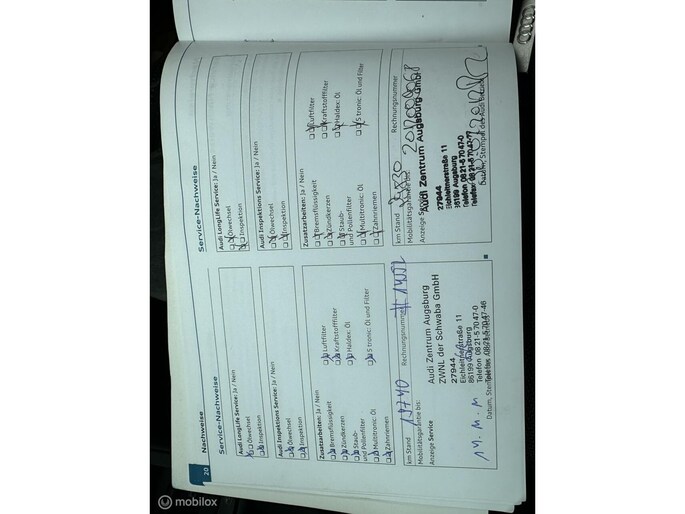 20
Nachweise
Service-Nachweise
Audi LongLife Service: Ja / Nein
Ölwechsel
Inspektion
Audi Inspektions Service: Ja / Nein
Ölwechsel
Inspektion
Zusatzarbeiten: Ja / Nein
Bremsflüssigkeit
Luftfilter
Zündkerzen
Kraftstofffilter
Staub-
und Pollenfilter
Haldex: Öl
Multitronic: Öl
S tronic: Öl und Filter
Zahnriemen
km Stand
Rechnungsnummer
Mobilitätsgarantie bis:
Anzeige Service
Audi Zentrum Augsburg
ZWNL der Schwaba GmbH
27944
Eichleitnerstraße 11
86199 Augsburg
Telefon 08 21-5 70 47-0
Telefax 08 21-5 70 47-46
Service-Nachweise
Audi LongLife Service: Ja / Nein
Ölwechsel
Inspektion
Audi Inspektions Service: Ja / Nein
Ölwechsel
Inspektion
Zusatzarbeiten: Ja / Nein
Bremsflüssigkeit
Luftfilter
Zündkerzen
Kraftstofffilter
Staub-
und Pollenfilter
Haldex: Öl
Multitronic: Öl
S tronic: Öl und Filter
Zahnriemen
km Stand
Rechnungsnummer
Mobilitätsgarantie bis:
Anzeige
Audi Zentrum Augsburg GmbH
27944
Eichleitnerstraße 11
86199 Augsburg
Telefon 08 21-5 70 47-0
mobilox